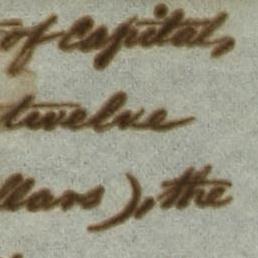 of Capital,
twelve
llars), the